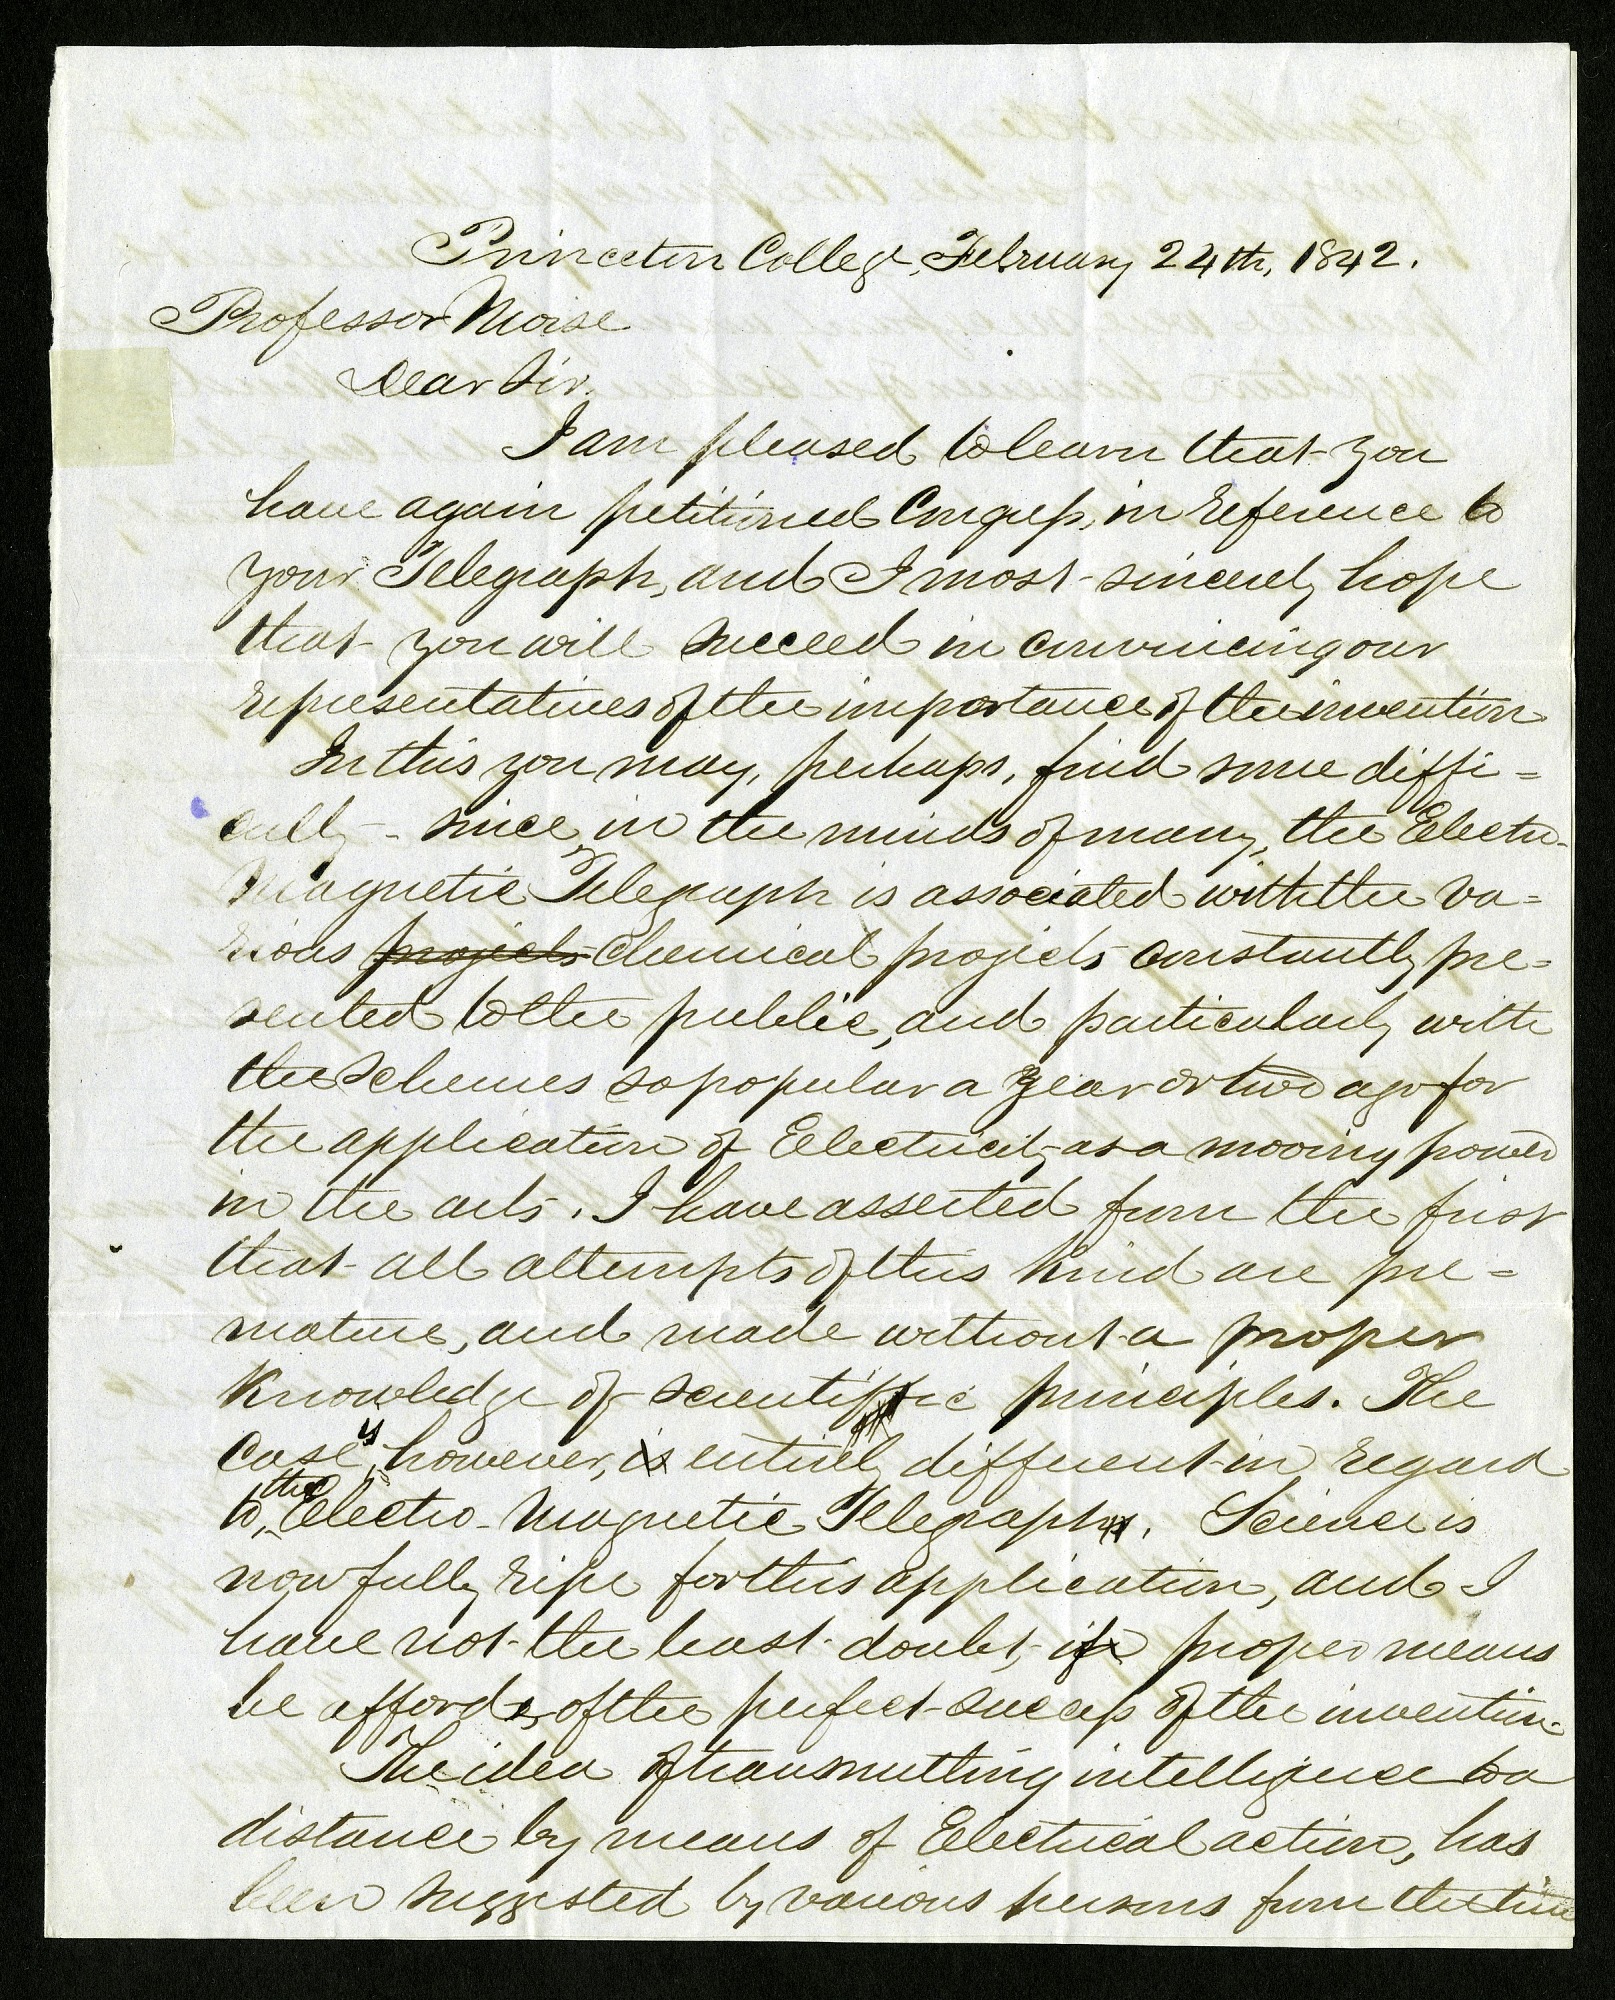 Princeton College, February 24th, 1842.
Professor Morse
Dear Sir.
I am pleased to learn that you
have again petitioned Congress, in reference to
your Telegraph, and I most sincerely hope
that you will succeed in convincing our
representatives of the importance of the invention
In this you may, perhaps, find some diffi=
culty - since, in the minds of many, the Electro-
Magnetic Telegraph is associated with the va=
rious projects chemical projects constantly pre=
sented to the public, and particularly with
the schemes so popular a year or two ago for
the application of Electricity as a mooving power
in the arts. I have asserted from the first
that all attempts of this kind are pre=
mature, and made without a proper
knowledge of scientific principles. The
case is, however, is entirely different in regard
to the Electro-Magnetic Telegraph. Science is
now fully ripe for this application, and I
have not the least doubt, if proper means
be afforded, of the perfect success of the invention.
The idea of transmitting intelligence to a
distance by means of Electrical action, has
been suggested by various persons from the time